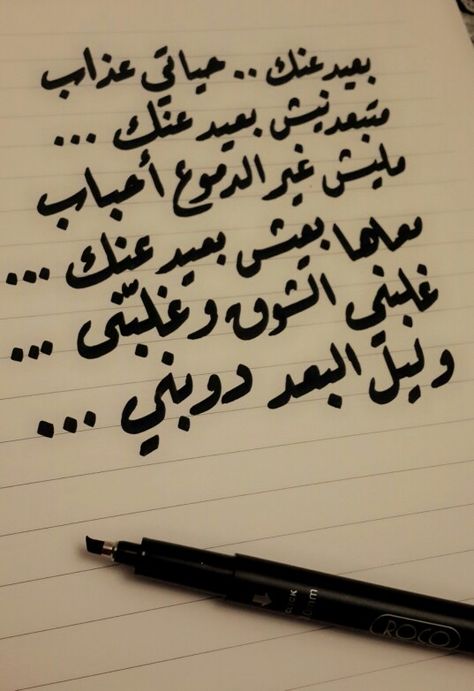 بعيد عنك .. حياتي عذاب
متبعدنيش بعيد عنك ...
مليش غير الدموع أحباب
معاها بعيش بعيد عنك ...
غلبني الشوق وغلبّنى ...
وليل البعد دوبني ...
ROCO